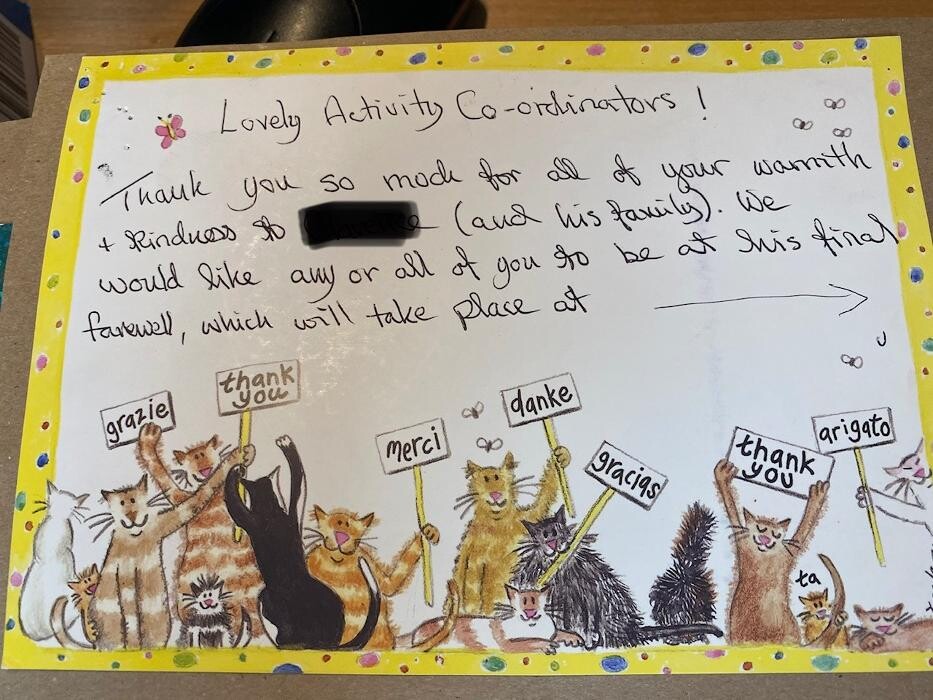 Lovely Activity Co-ordinators !
Thank you so much for all of your warmth
+ kindness to (and his family). We
would like any or all of you to be at his final
farewell, which will take place at
grazie
thank
you
merci
danke
gracias
thank
you
arigato
ta